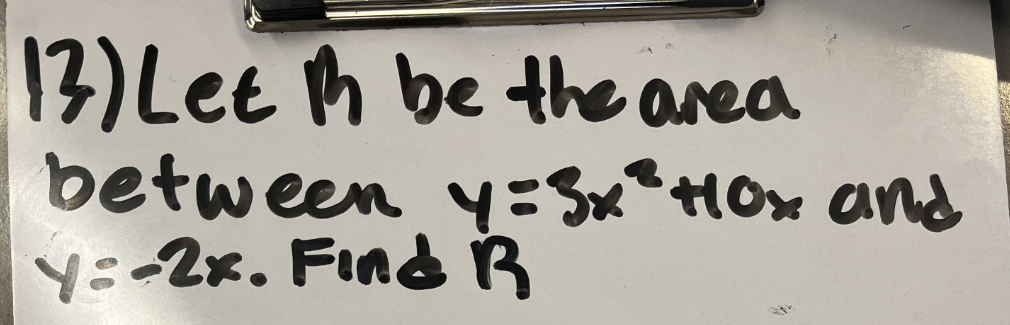 13) Let R be the area
between y=3x²+10x and
y=-2x. Find R